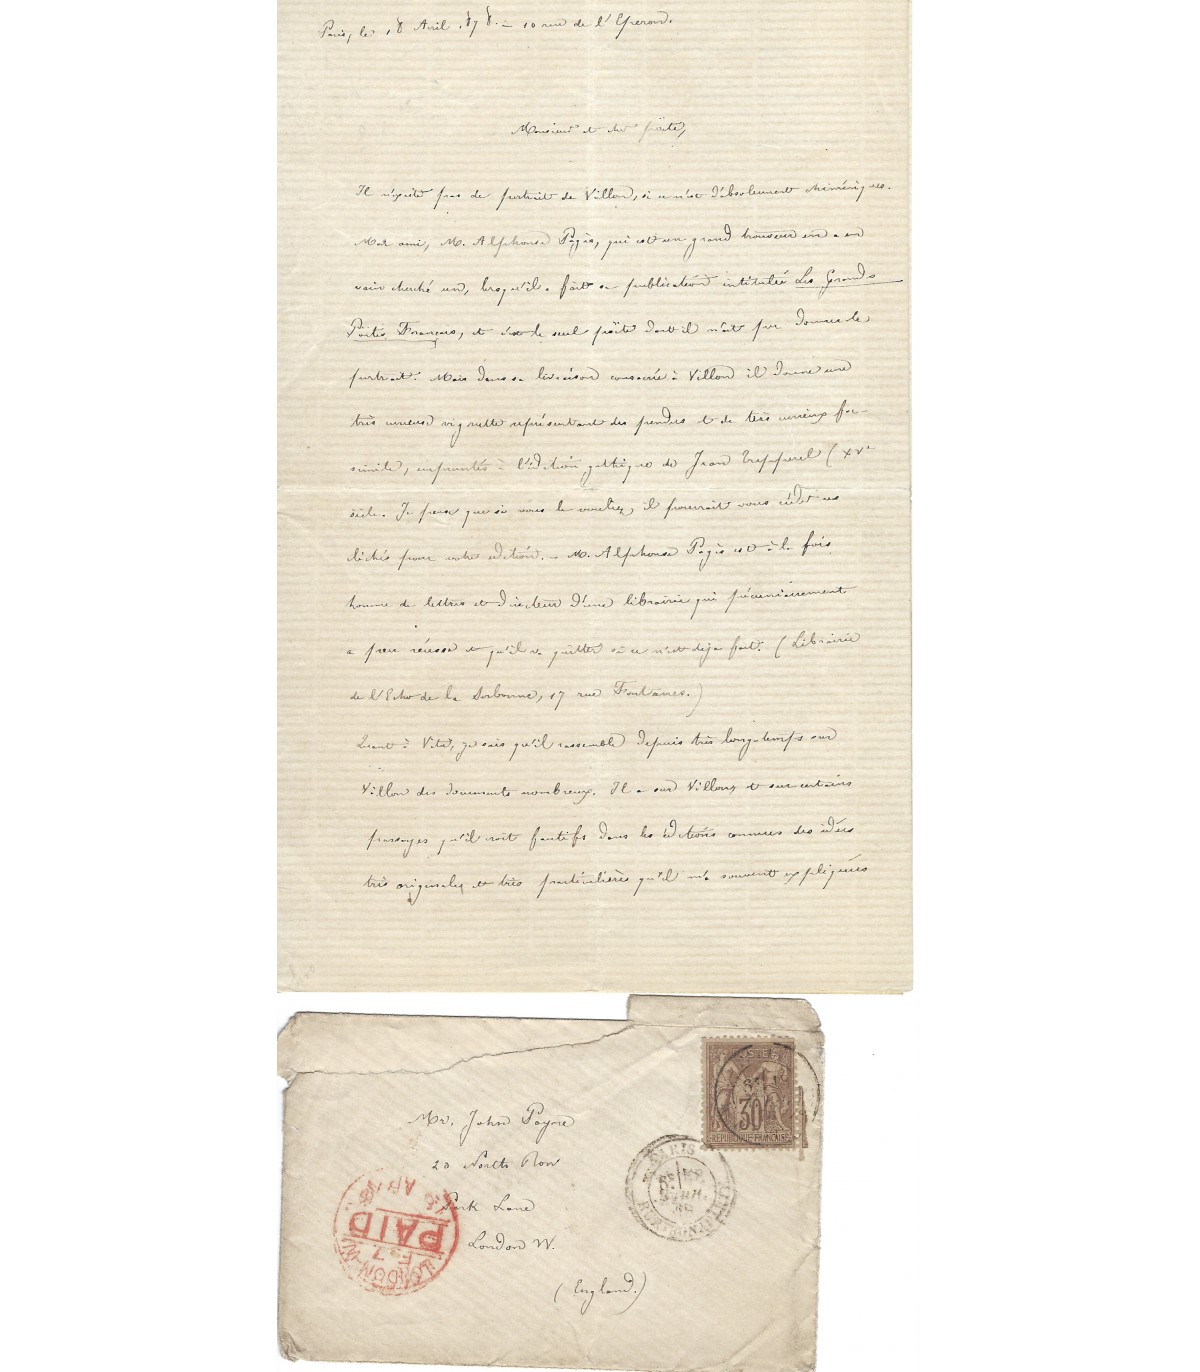 Paris, le 18 Avril 1878. - 10 rue de l'Eperon.
Monsieur et cher poëte,
Il n'existe pas de portrait de Villon, si ce n'est d'absolument chimériques.
Mon ami, M. Alphonse Pagès, qui est un grand trouveur en a en
vain cherché un, lorsqu'il a fait sa publication intitulée Les Grands
Poëtes Français, et c'est le seul poëte dont il n'ait pu donner le
portrait. Mais dans sa livraison consacrée à Villon il donne une
très curieuse vignette représentant des pendus et de très curieux fac-
simile, empruntés à l'édition gothique de Jean Trepperel (XVe
siècle. Je pense que si vous le vouliez, il pourrait vous céder ces
clichés pour votre édition. - M. Alphonse Pagès est à la fois
homme de lettres et directeur d'une librairie qui pécuniairement
a peu réussi et qu'il va quitter si ce n'est déja fait. (Librairie
de l'Echo de la Sorbonne, 17 rue Fontanes.)
Quant à Vitu, je sais qu'il rassemble depuis très longtemps sur
Villon des documents nombreux. Il a sur Villon, et sur certains
passages qu'il croit fautifs dans les éditions connues des idées
très originales et très particulières qu'il m'a souvent expliquées
POSTES
30
REPUBLIQUE FRANÇAISE
Mr. John Payne
20 North Row
Park Lane
London W.
(England.)
PARIS
R. BONAPARTE
LONDON-W
PAID
AP